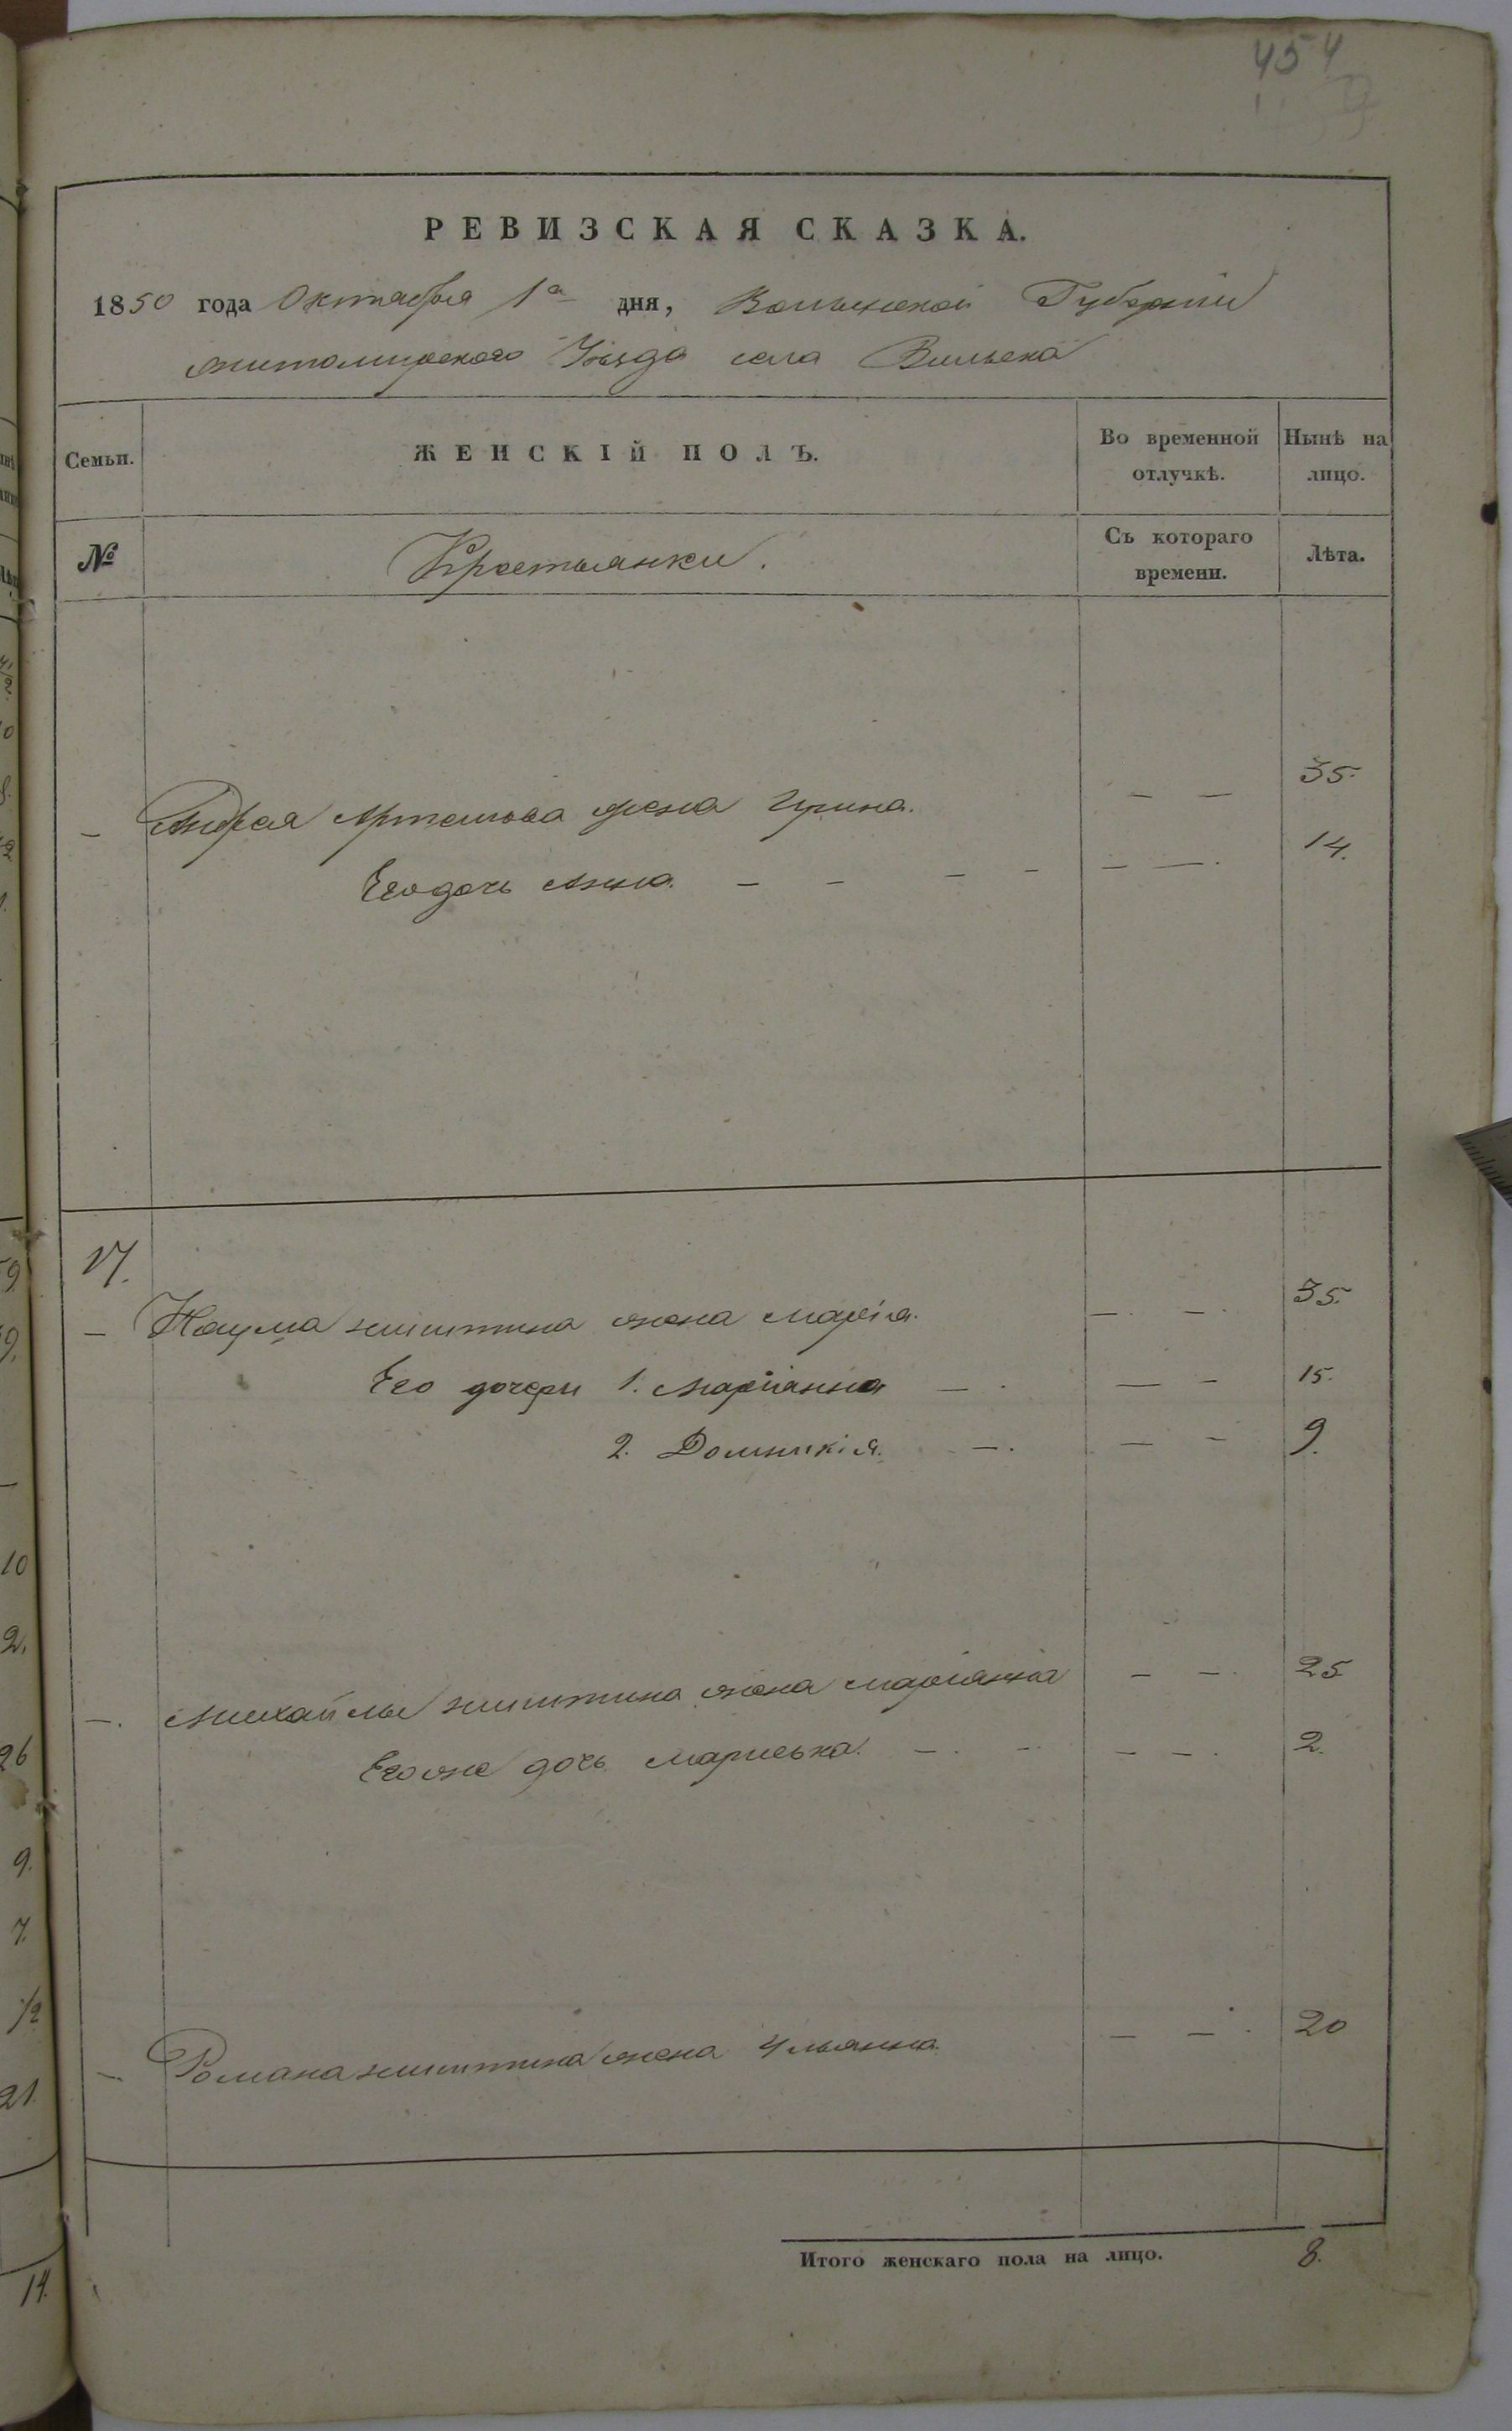 454
РЕВИЗСКАЯ СКАЗКА.
1850 года Октября 1го дня, Волынской Губерніи
Житомирского Уѣзда села Вильска
Семьи.
ЖЕНСКІЙ ПОЛЪ.
Во временной отлучкѣ.
Нынѣ на лицо.
№
Крестьянки.
Съ котораго времени.
Лѣта.
— Андрея Артемова жена Ирина. — — 35.
Его дочь Анна. — — — — — —. 14.
17.
— Наума жена Марія. —. —. 35.
Его дочери 1. Маріанна — . — — 15.
2. Домникія. —. — — 9.
—. Михайлы жена Маріанна — —. 25
Его же дочь Мариська. —. — — —. 2.
—. Романа жена Ульянна. — —. 20
Итого женскаго пола на лицо. 8.